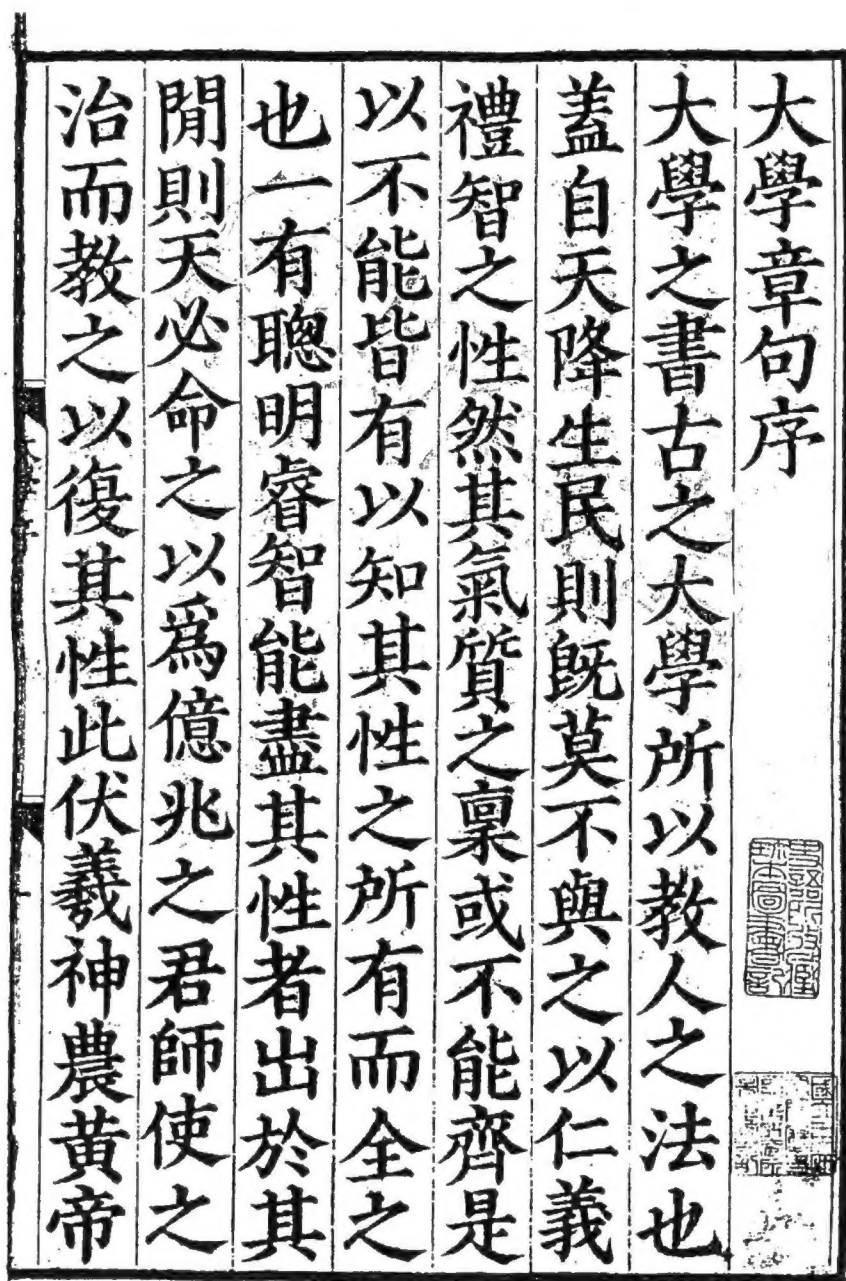 大學章句序
大學之書古之大學所以教人之法也
蓋自天降生民則既莫不與之以仁義
禮智之性然其氣質之稟或不能齊是
以不能皆有以知其性之所有而全之
也一有聰明睿智能盡其性者出於其
閒則天必命之以爲億兆之君師使之
治而教之以復其性此伏羲神農黃帝